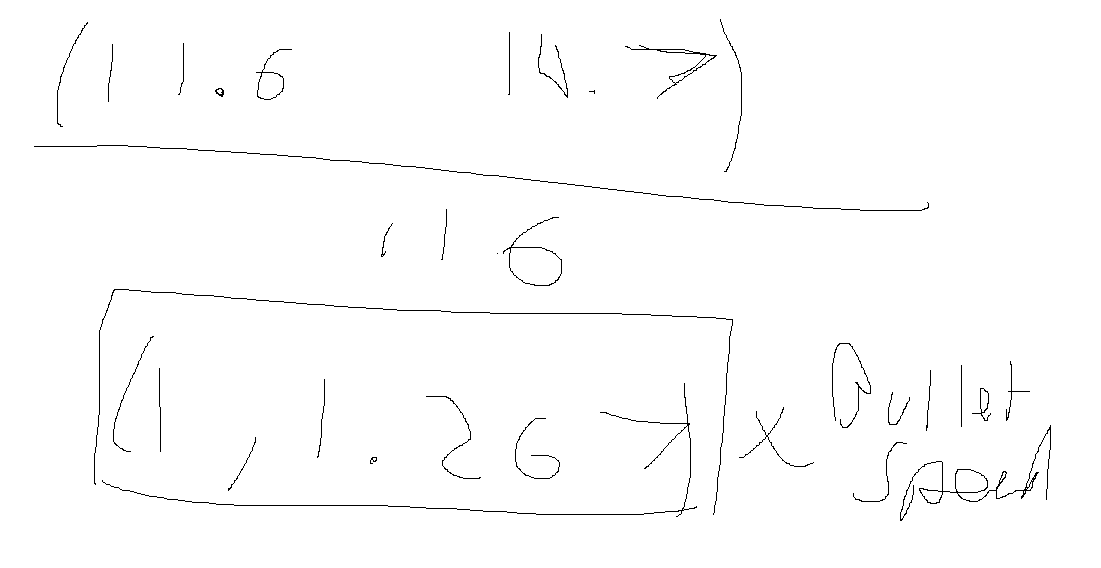 (11.6 14.7)
.16
(1, 1.267) x Bullet
Speed